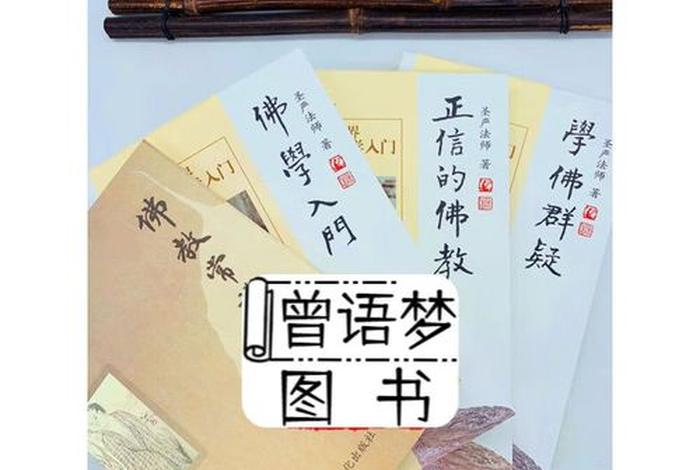 佛學入門
圣严法师 著
入门
正信的佛教
圣严法师 著
界
入门
學佛群疑
圣严法师 著
佛教常
化出版社
曾语梦
图书